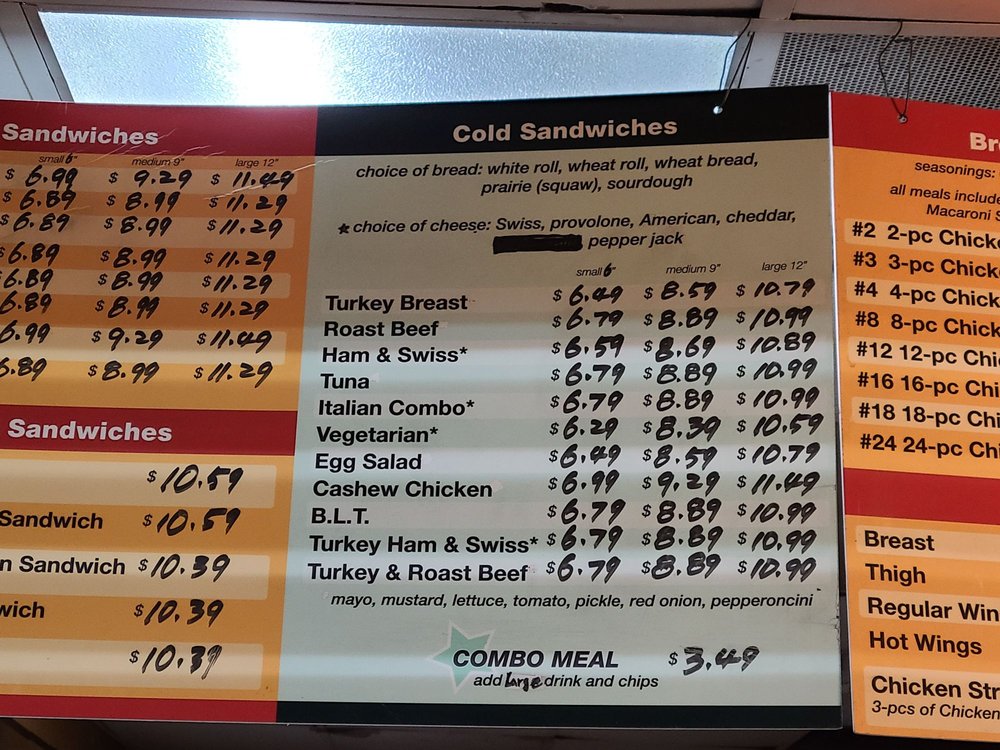 Sandwiches
small 6" medium 9" large 12"
$ 6.99 $ 9.29 $ 11.49
$ 6.89 $ 8.99 $ 11.29
$ 6.89 $ 8.99 $ 11.29
$ 6.89 $ 8.99 $ 11.29
6.89 $ 8.99 $ 11.29
6.89 $ 8.99 $ 11.29
6.99 $ 9.29 $ 11.49
6.89 $ 8.99 $ 11.29
Sandwiches
$ 10.59
Sandwich $ 10.59
n Sandwich $ 10.39
wich $ 10.39
$ 10.39
Cold Sandwiches
choice of bread: white roll, wheat roll, wheat bread,
prairie (squaw), sourdough
* choice of cheese: Swiss, provolone, American, cheddar,
pepper jack
small 6" medium 9" large 12"
Turkey Breast $ 6.49 $ 8.59 $ 10.79
Roast Beef $ 6.79 $ 8.89 $ 10.99
Ham & Swiss* $ 6.59 $ 8.69 $ 10.89
Tuna $ 6.79 $ 8.89 $ 10.99
Italian Combo* $ 6.79 $ 8.89 $ 10.99
Vegetarian* $ 6.29 $ 8.39 $ 10.59
Egg Salad $ 6.49 $ 8.59 $ 10.79
Cashew Chicken $ 6.99 $ 9.29 $ 11.49
B.L.T. $ 6.79 $ 8.89 $ 10.99
Turkey Ham & Swiss* $ 6.79 $ 8.89 $ 10.99
Turkey & Roast Beef $ 6.79 $ 8.89 $ 10.99
mayo, mustard, lettuce, tomato, pickle, red onion, pepperoncini
COMBO MEAL $ 3.49
add Large drink and chips
Br
seasonings:
all meals include
Macaroni S
#2 2-pc Chick
#3 3-pc Chick
#4 4-pc Chick
#8 8-pc Chick
#12 12-pc Chi
#16 16-pc Chi
#18 18-pc Chi
#24 24-pc Ch
Breast
Thigh
Regular Win
Hot Wings
Chicken Str
3-pcs of Chicken